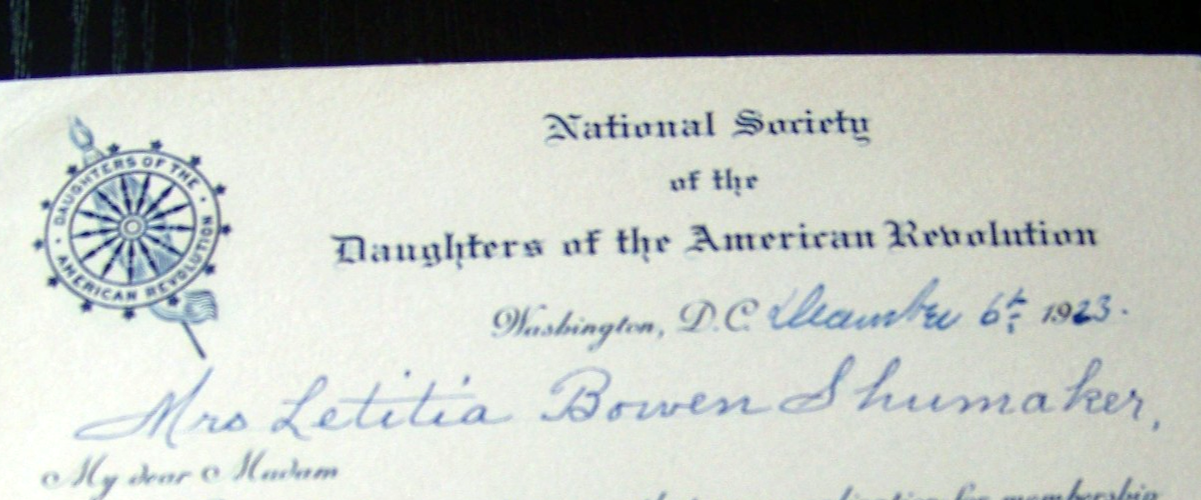 National Society
of the
Daughters of the American Revolution
DAUGHTERS OF THE
AMERICAN REVOLUTION
Washington, D.C. December 6th 1923.
Mrs Letitia Bowen Shumaker,
My dear Madam
application for membership